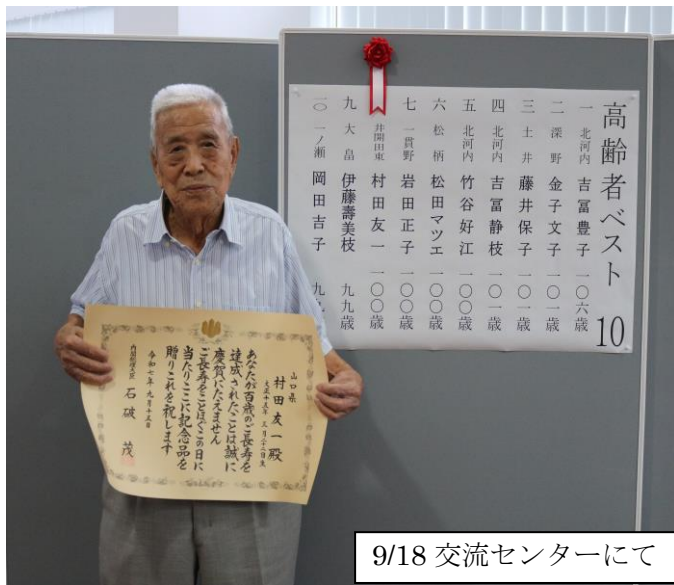 高齢者ベスト10
一 北河内 吉冨豊子 一〇六歳
二 深野 金子文子 一〇一歳
三 土井 藤井保子 一〇一歳
四 北河内 吉冨静枝 一〇一歳
五 北河内 竹谷好江 一〇〇歳
六 松柄 松田マツエ 一〇〇歳
七 一貫野 岩田正子 一〇〇歳
井開田東 村田友一 一〇〇歳
九 大畠 伊藤壽美枝 九九歳
一〇 一ノ瀬 岡田吉子 九九歳
山口県
村田友一殿
大正十五年 三月
あなたが百歳のご長寿を
達成されたことは誠に
慶賀にたえません
ご長寿をことほぐこの日に
当たりここに記念品を
贈りこれを祝します
令和七年九月十五日
内閣総理大臣 石破 茂
9/18 交流センターにて